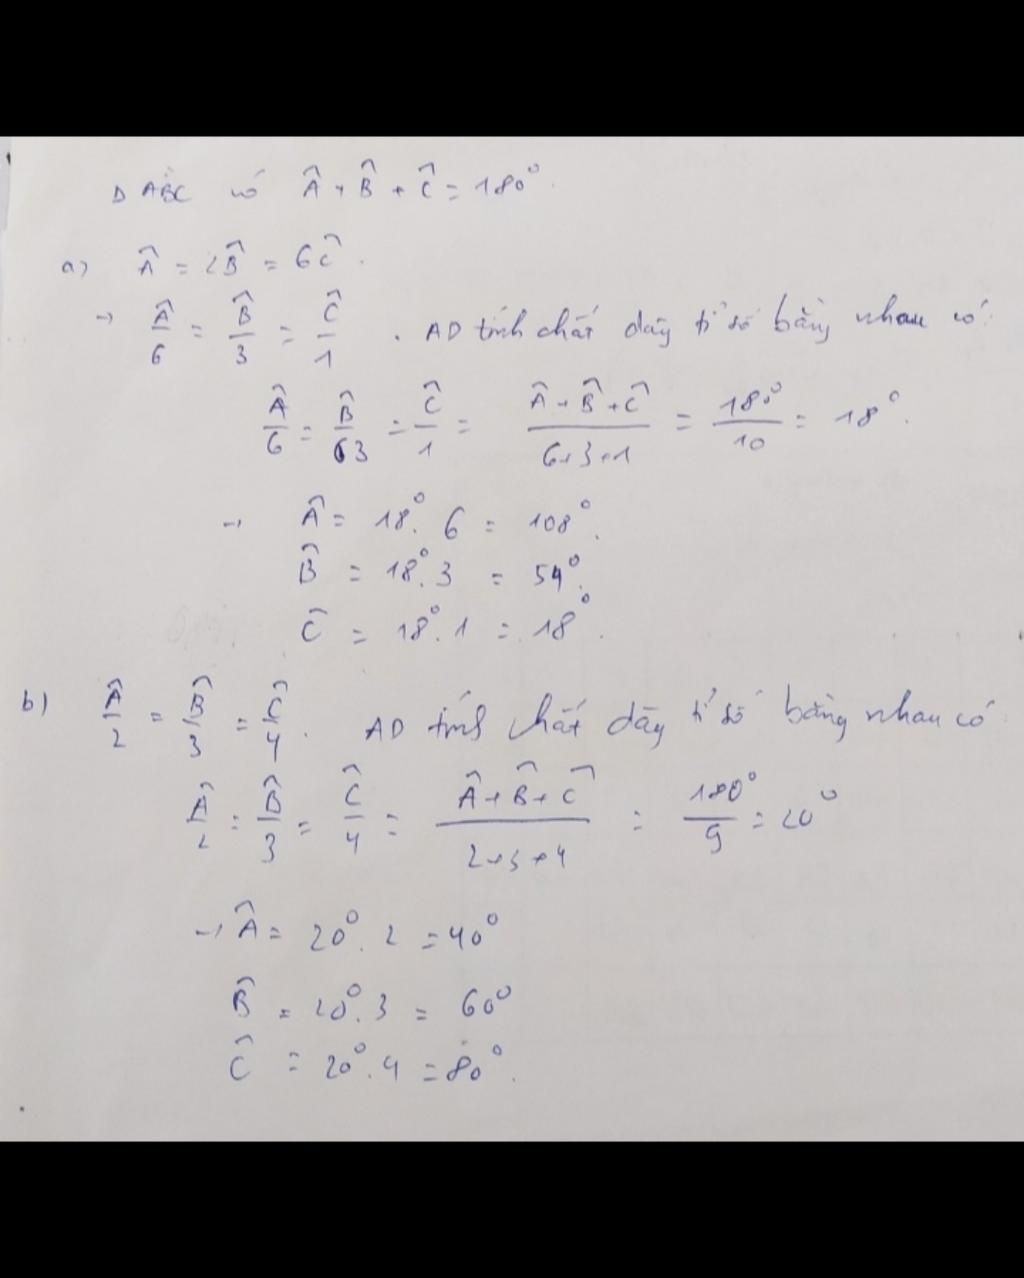 Δ ABC có Â + B̂ + Ĉ = 180°.
a) Â = 2B̂ = 6Ĉ.
→ Â/6 = B̂/3 = Ĉ/1 . AD tính chất dãy tỉ số bằng nhau có
Â/6 = B̂/3 = Ĉ/1 = (Â + B̂ + Ĉ)/(6+3+1) = 180°/10 = 18°.
→ Â = 18°. 6 = 108°.
B̂ = 18°. 3 = 54°.
Ĉ = 18°. 1 = 18°.
b) Â/2 = B̂/3 = Ĉ/4 . AD tính chất dãy tỉ số bằng nhau có
Â/2 = B̂/3 = Ĉ/4 = (Â + B̂ + Ĉ)/(2+3+4) = 180°/9 = 20°
→ Â = 20°. 2 = 40°
B̂ = 20°. 3 = 60°
Ĉ = 20°. 4 = 80°.